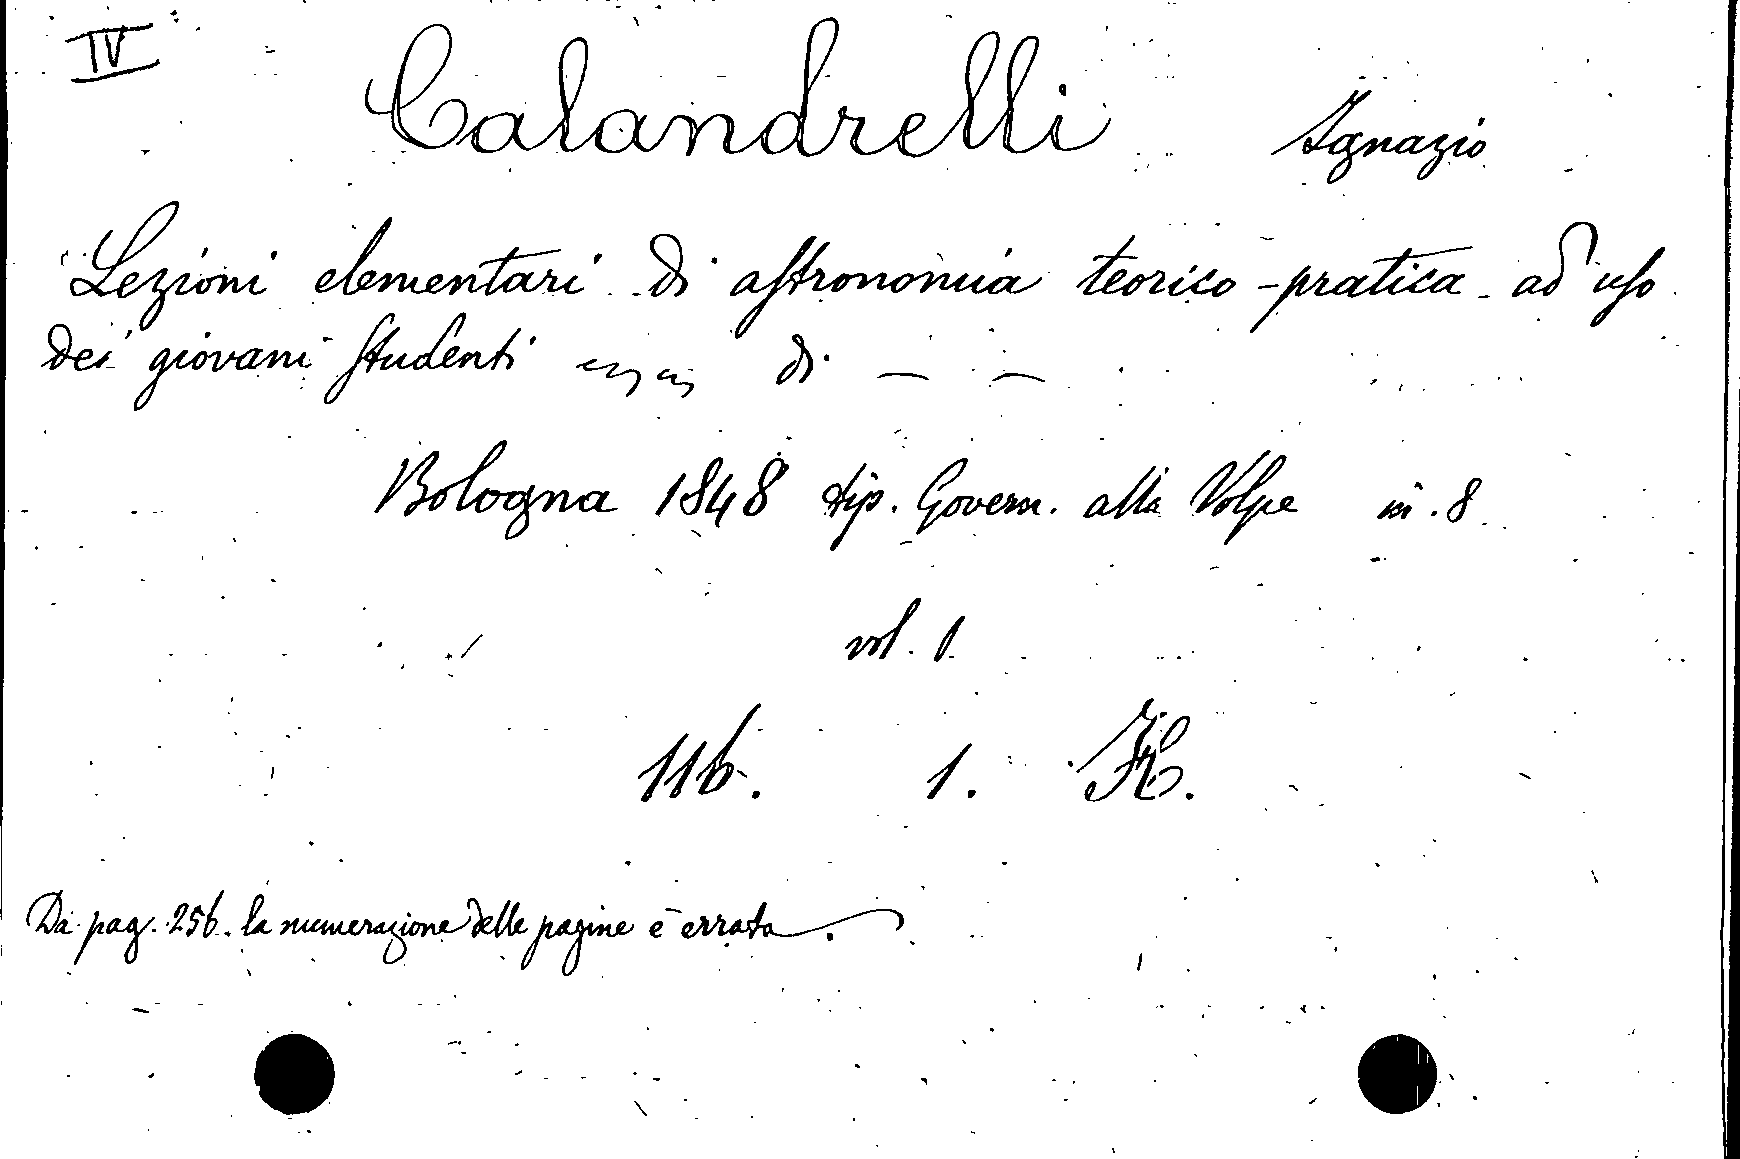 IV
Calandrelli Ignazio
Lezioni elementari di astronomia teorico-pratica ad uso
dei giovani studenti di — —
Bologna 1848 tip. Govern. alla Volpe in. 8
vol. 1
116. 1. K.
Da pag. 256. la numerazione delle pagine è errata.